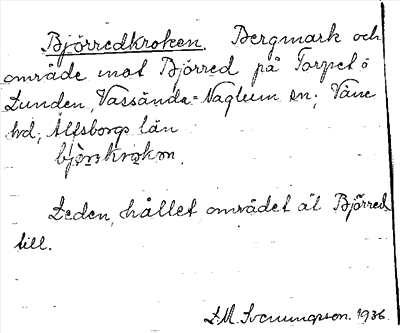 Björredkroken. Bergmark och
område mot Björred på Torpet ö
Lunden, Vassända-Naglum sn; Väne
hd; Älfsborgs län
björskrokon.
Leden, hållet området åt Björred
till.
L.M. Svenungsson. 1936.